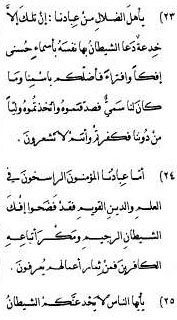 (٢٣) يأهل الضلال من عبادنا : إن تلك إلا
خدعة دعا الشيطان بها نفسه بأسماء حسنى
إفكا وافتراء فأضلكم باسمنا وما
كان لنا سمي فصدقتموه واتخذتموه وليا
من دوننا فكفرتم وأنتم لا تشعرون .
(٢٤) أما عبادنا المؤمنون الراسخون في
العلم والدين القويم فقد فضحوا إفك
الشيطان الرجيم ومكر أتباعه
الكافرين فمن ثمار أعمالهم يعرفون .
(٢٥) يأيها الناس لا يخدعنكم الشيطان